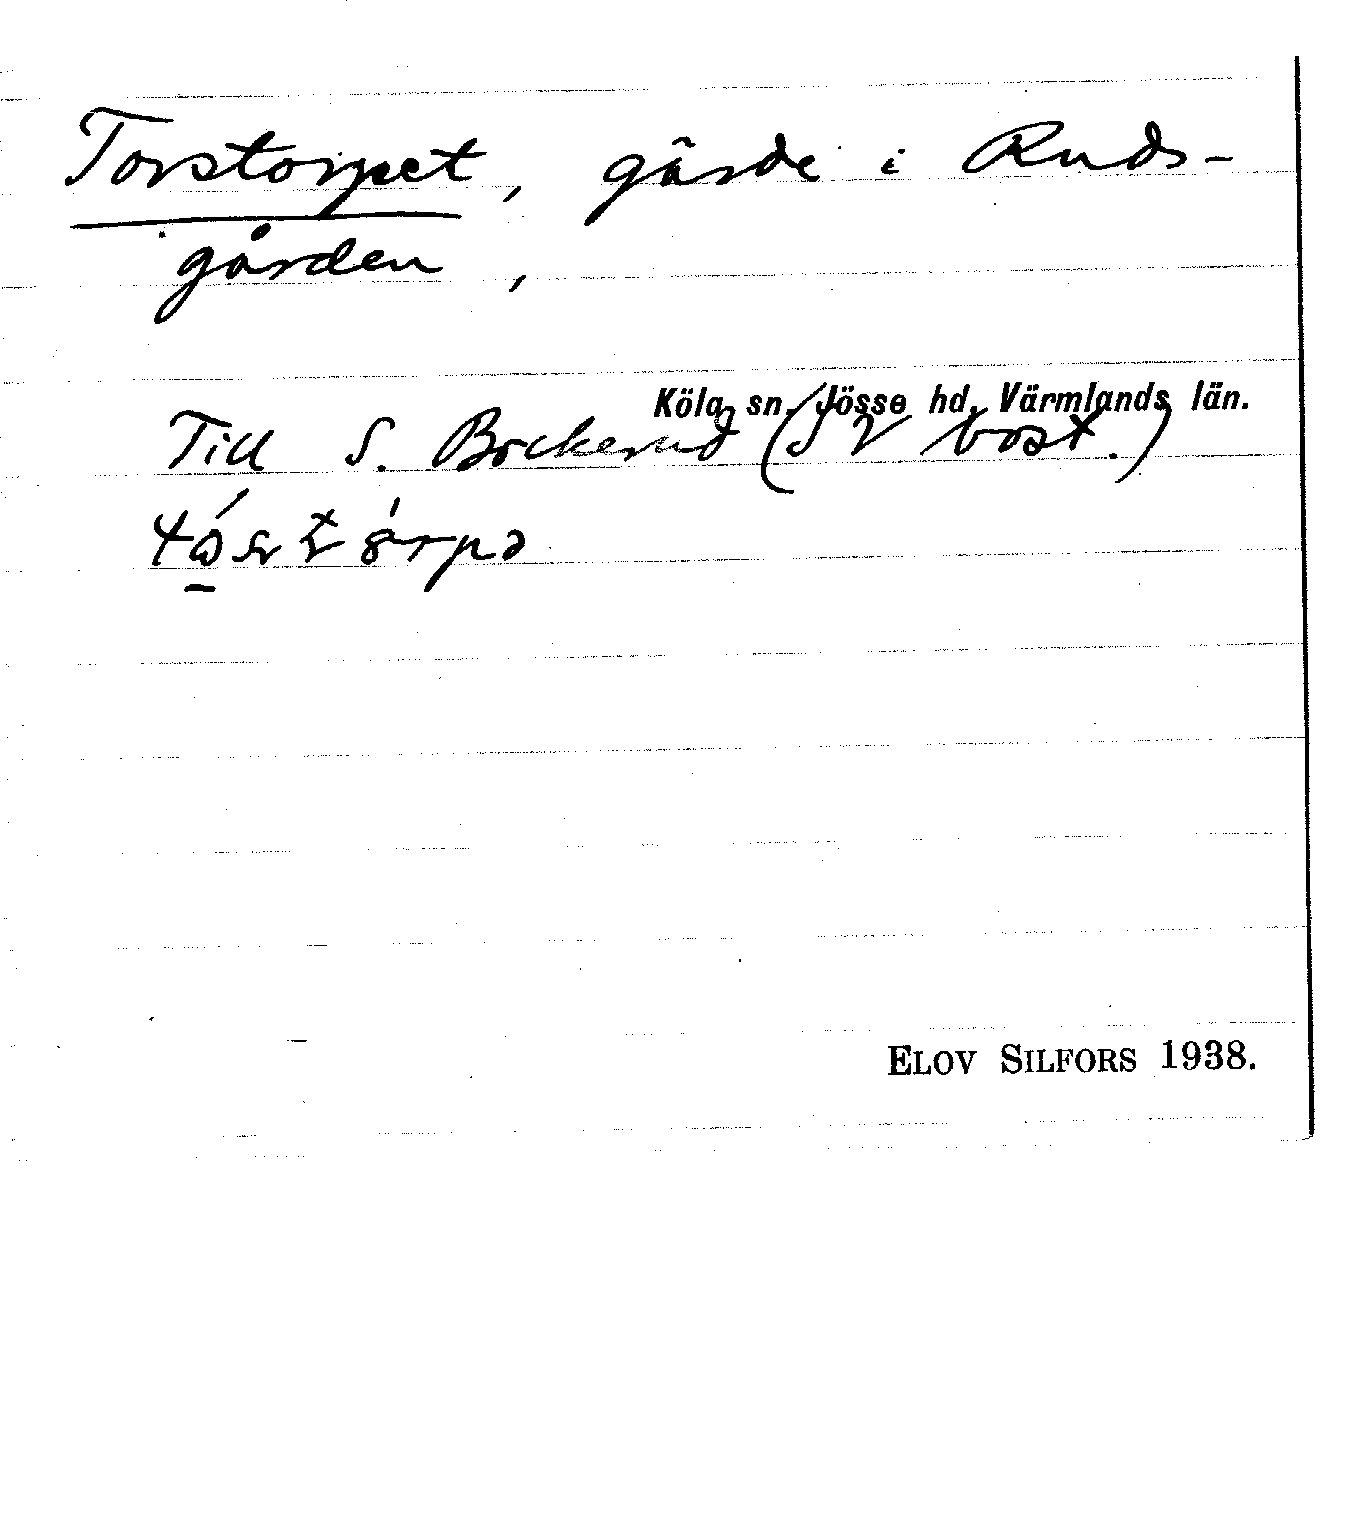 Torstorpet, gärde i Ruds-
gården,
Köla sn. Jösse hd. Värmlands län.
Till S. Bockerud (J V bost.)
ELOV SILFORS 1938.